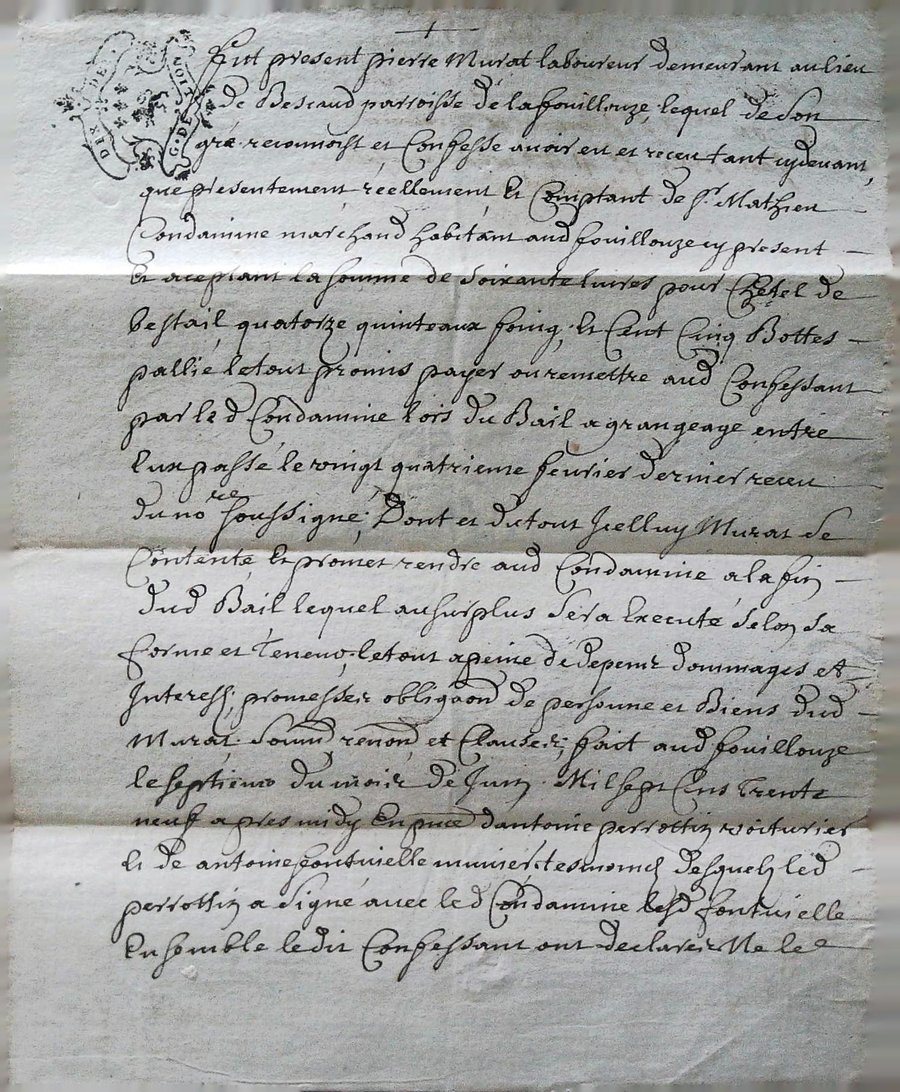 DIX DEN.
G. DE LION
fut present pierre Murat laboureur demeurant au lieu
de Bessaud parroisse de lafouillouze, lequel de son
gré reconnoist et Confesse avoir eu et receu tant cydevant,
que presentement réellement, Et Comptant de sr. Mathieu
Condamine marchand habitant aud fouillouze cy present
Et aceptant la somme de soixante livres pour Chetel de
bestail, quatorze quinteaux foing, Et Cent Cinq Bottes
pallie le tout promis payer ou remettre aud Confessant
par led Condamine lors du Bail a grangeage entre
Eux passé le vingt quatrieme feuvrier dernier receu
du nore soussigné; Dont et du tout Icelluy Murat se
Contente Et promet rendre aud Condamine a la fin
dud Bail lequel au surplus sera Executé selon sa
forme et teneur, le tout a peine de depens dommages et
Interests, promesses obligaons de personne et Biens dud
Murat soumd, renond, et Clauses, fait aud fouillouze
le septieme du mois de Juin Mil sept Cens trente
neuf apres midy En pnce d'antoine perrottin voiturier
Et de antoine fontvielle munier tesmoins desquels led
perrottin a signé avec led Condamine led fontvielle
Ensemble ledit Confessant ont declarez Ne le